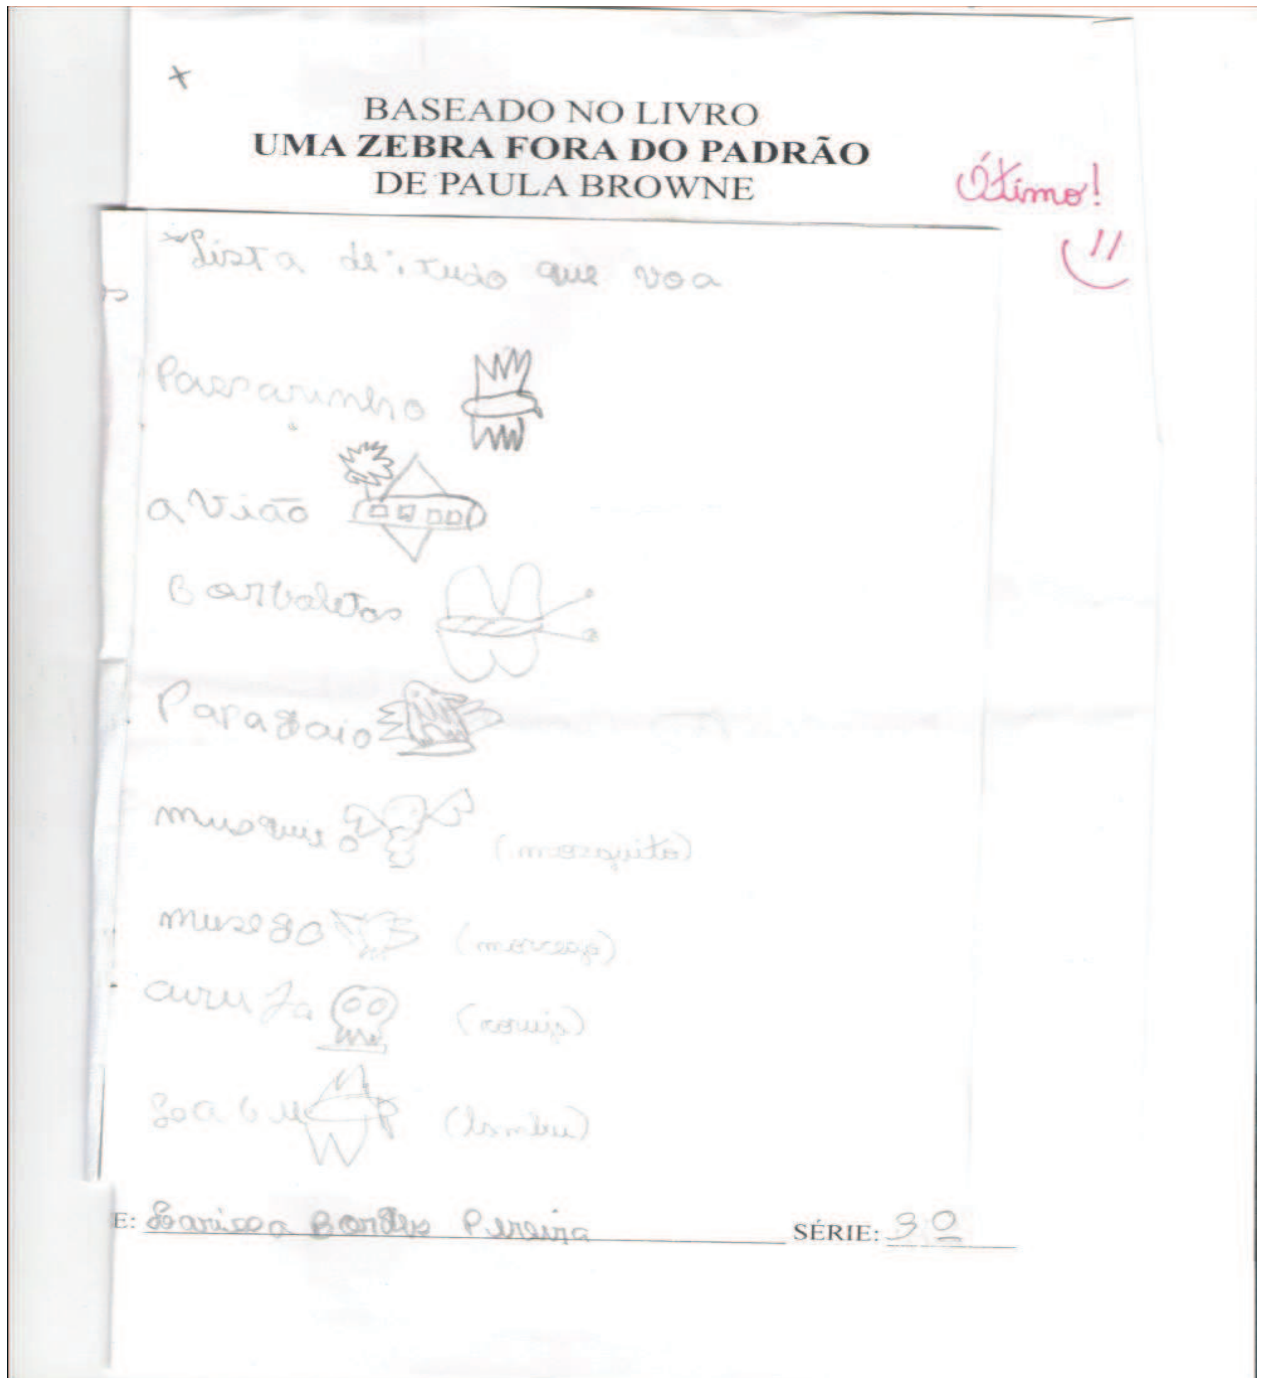 BASEADO NO LIVRO
UMA ZEBRA FORA DO PADRÃO
DE PAULA BROWNE
Ótimo!
Lista de: tudo que voa
Passarinho
avião
Borboletas
Papagaio
musquito (mosquito)
musego (morcego)
curuja (coruja)
(lambu)
E: Larissa Pereira SÉRIE: 3º